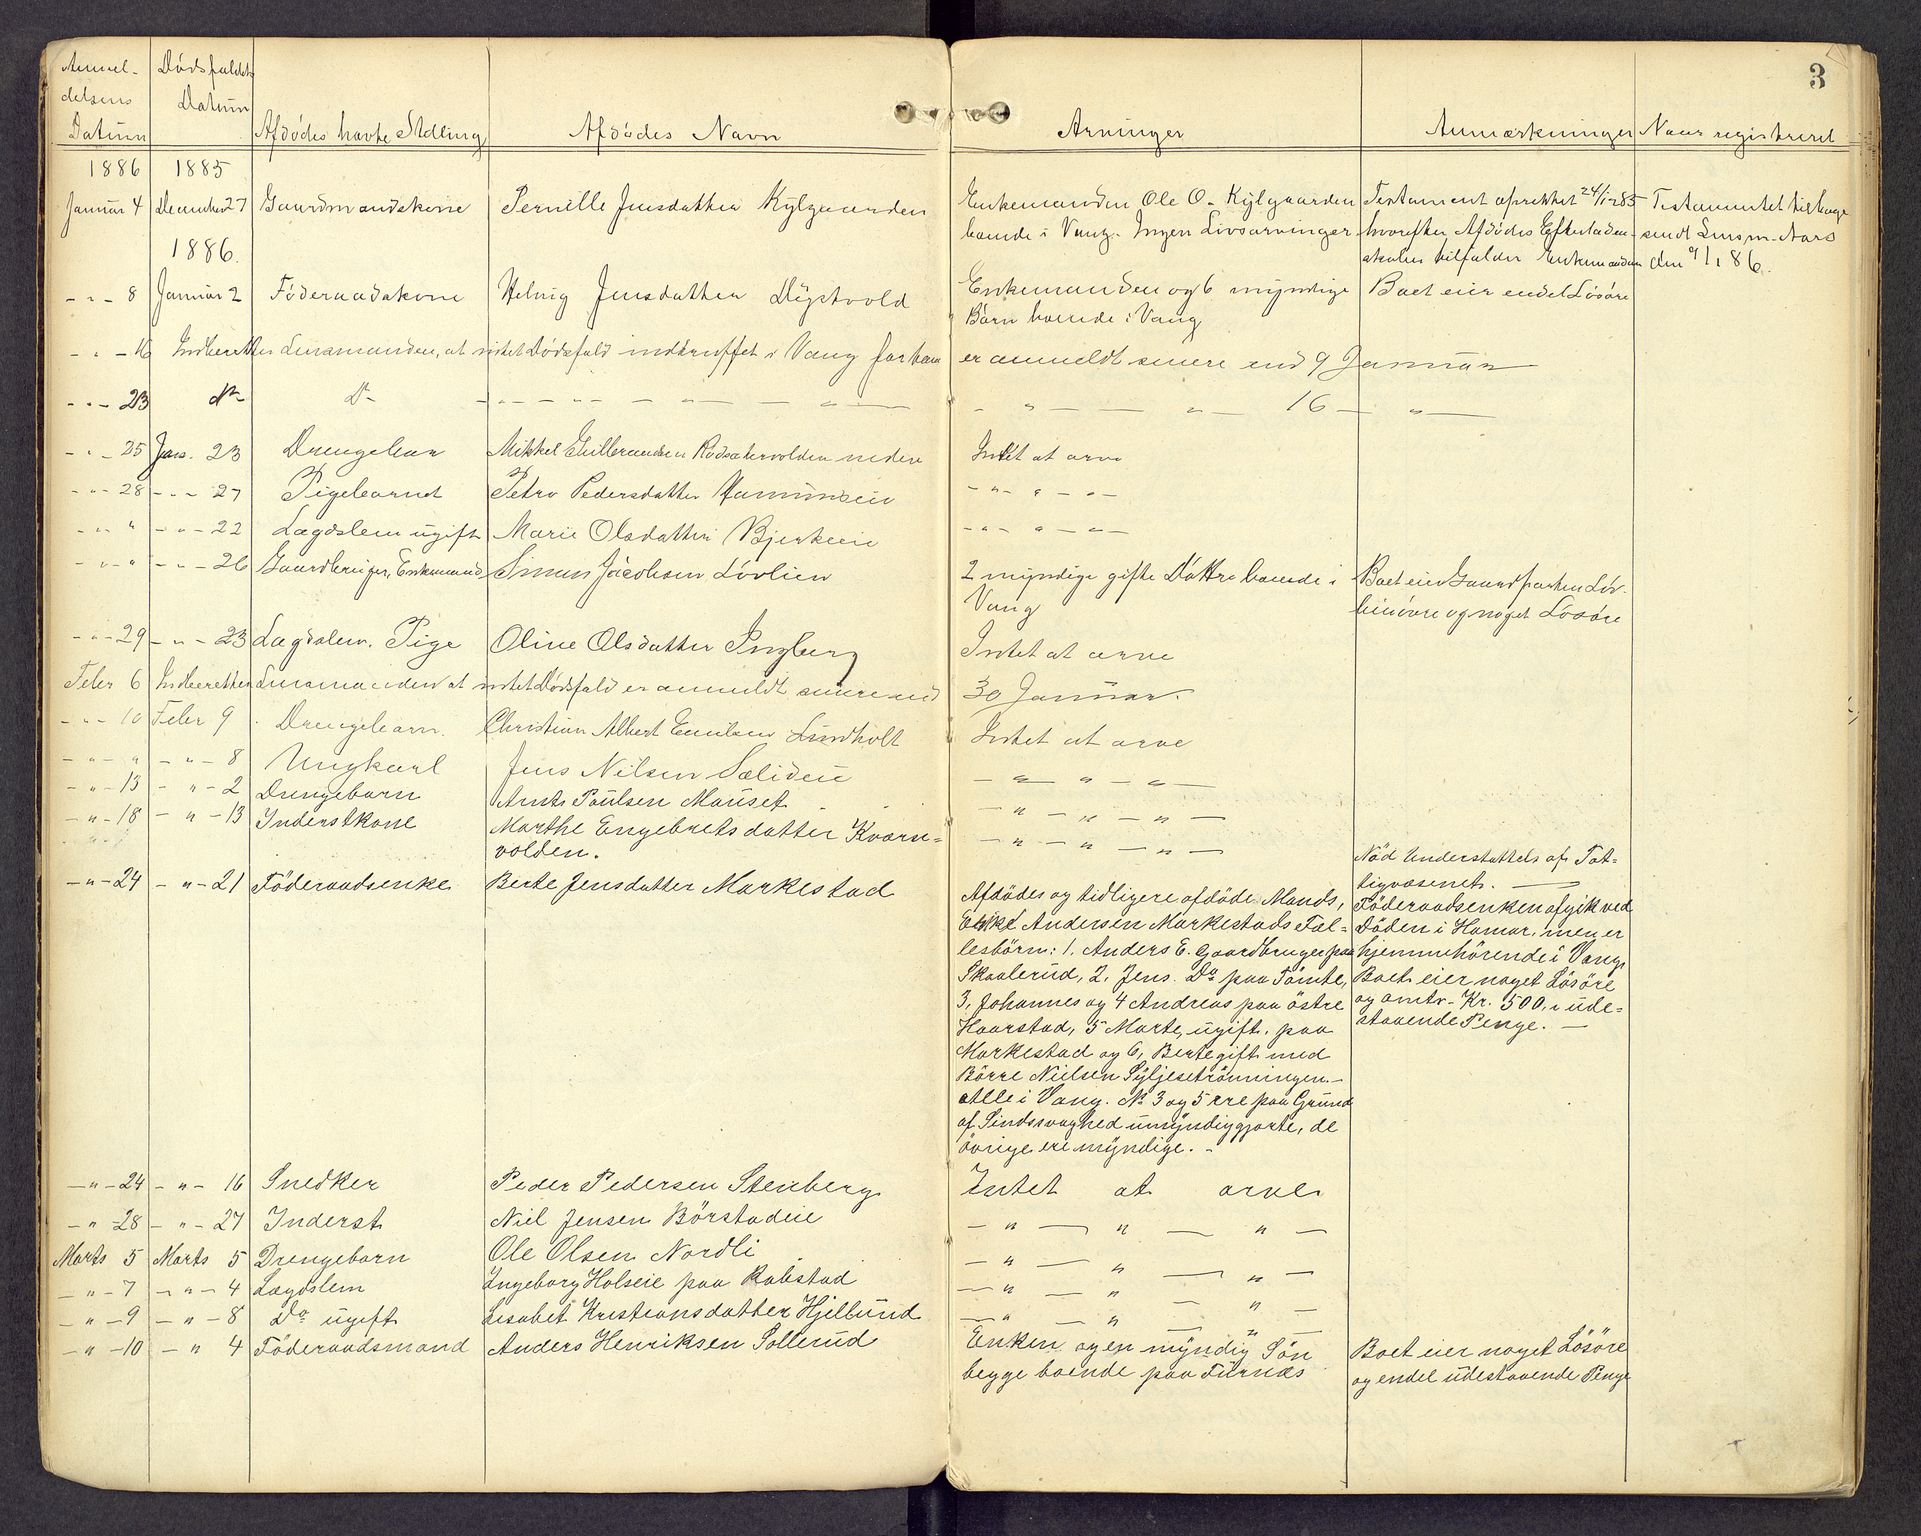 3
Anmel- Dödsfaldets
delsens Datum
Datum Afdödes havte Stilling Afdödes Navn Arvinger Anmærkninger Naar registreret
1886 1885
Januar 4 December 27 Gaardmandskone Pernille Jensdatter Kylgaarden Enkemanden Ole O. Kylgaarden Testament oprettet 24/1 85 Testamentet tilbage
boende i Vang. Ingen Livsarvinger hvorefter Afdödes Efterladen- sendt Lensm. Aars
skaber tilfalder Enkemanden den 9/1 86.
1886.
- " - 8 Januar 2 Föderaadskone Helvig Jensdatter Dystvold Enkemanden og 6 myndige Boet eier endel Lösöre
Börn boende i Vang
- " - 16 Indberetter Lensmanden, at intet Dödsfald indtruffet i Vang for ham er anmeldt senere end 9 Januar
- " - 23 do do - " - - " - - " - - " - - " - - " - 16 - " -
- " - 25 Jan. 23 Drengebarn Mikkel Gulbrandsen Rodsætervolden nedre Intet at arve
- " - 28 - " - 27 Pigebarnet Petra Pedersdatter Hammerseie - " - " - " -
- " " - " - 22 Lægdslem ugift Marie Olsdatter Bjerkeeie - " - " - " -
- " - " - " - 26 Gaardbruger, Enkemand Simen Jacobsen Lövlien 2 myndige gifte Döttre boende i Boet eier Gaardparten Löv-
Vang lien övre og noget Lösöre
- " - 29 - " - 23 Lægdslem. Pige Oline Olsdatter Ingberg Intet at arve
Febr 6 Indberetter Lensmanden at intet Dödsfald er anmeldt senere end 30 Januar.
- " - 10 Febr 9 Drengebarn Christian Albert Emilsen Lundholt Intet at arve
- " - " - " - 8 Ungkarl Jens Nilsen Sælideie - " - " - " -
- " - 13 - " - 2 Drengebarn Arnt Paulsen Mauset - " - " - " -
- " - 18 - " - 13 Inderstkone Marthe Engebretsdatter Kvarn= - " - " - " -
volden. Nöd Understöttels af Fat-
tigvæsenet.
- " - 24 - " - 21 Föderaadsenke Berte Jensdatter Markestad Afdödes og tidligere afdöde Mands,
Föderaadsenken afgik ved
Döden i Hamar, men er
hjemmehörende i Vang.
Boet eier noget Lösöre
og omtr. Kr. 500, i ude=
staaende Penge. -
Andersen Markestads Fæl=
lesbörn: 1. Anders E. Gaardbruger paa
Skaalerud, 2. Jens. Do paa Tomte,
3, Johannes og 4 Andreas paa östre
Haarstad, 5 Marte, ugift, paa
Markestad og 6, Berte gift med
Börre Nielsen Syljesetrönningen. -
alle i Vang. No 3 og 5 ere paa Grund
af Sindssvaghed umyndiggjorte, de
övrige ere myndige. -
- " - 24 - " - 16 Snedker Peder Pedersen Stenberg Intet at arve
- " - 28 - " - 27 Inderst Niel Jensen Börstadeie - " - " - " -
Marts 5 Marts 5 Drengebarn Ole Olsen Nordli - " - " - " -
- " - 7 - " - 4 Lægdslem Ingeborg Holseie paa Rabstad - " - " - " -
- " - 9 - " - 8 Do ugift Lisabet Kristiansdatter Hjellund - " - " - " -
- " - 10 - " 4 Föderaadsmand Anders Henriksen Sollerud Enken og en myndig Sön Boet eier noget Lösöre
begge boende paa Furnæs og endel udestaaende Penge